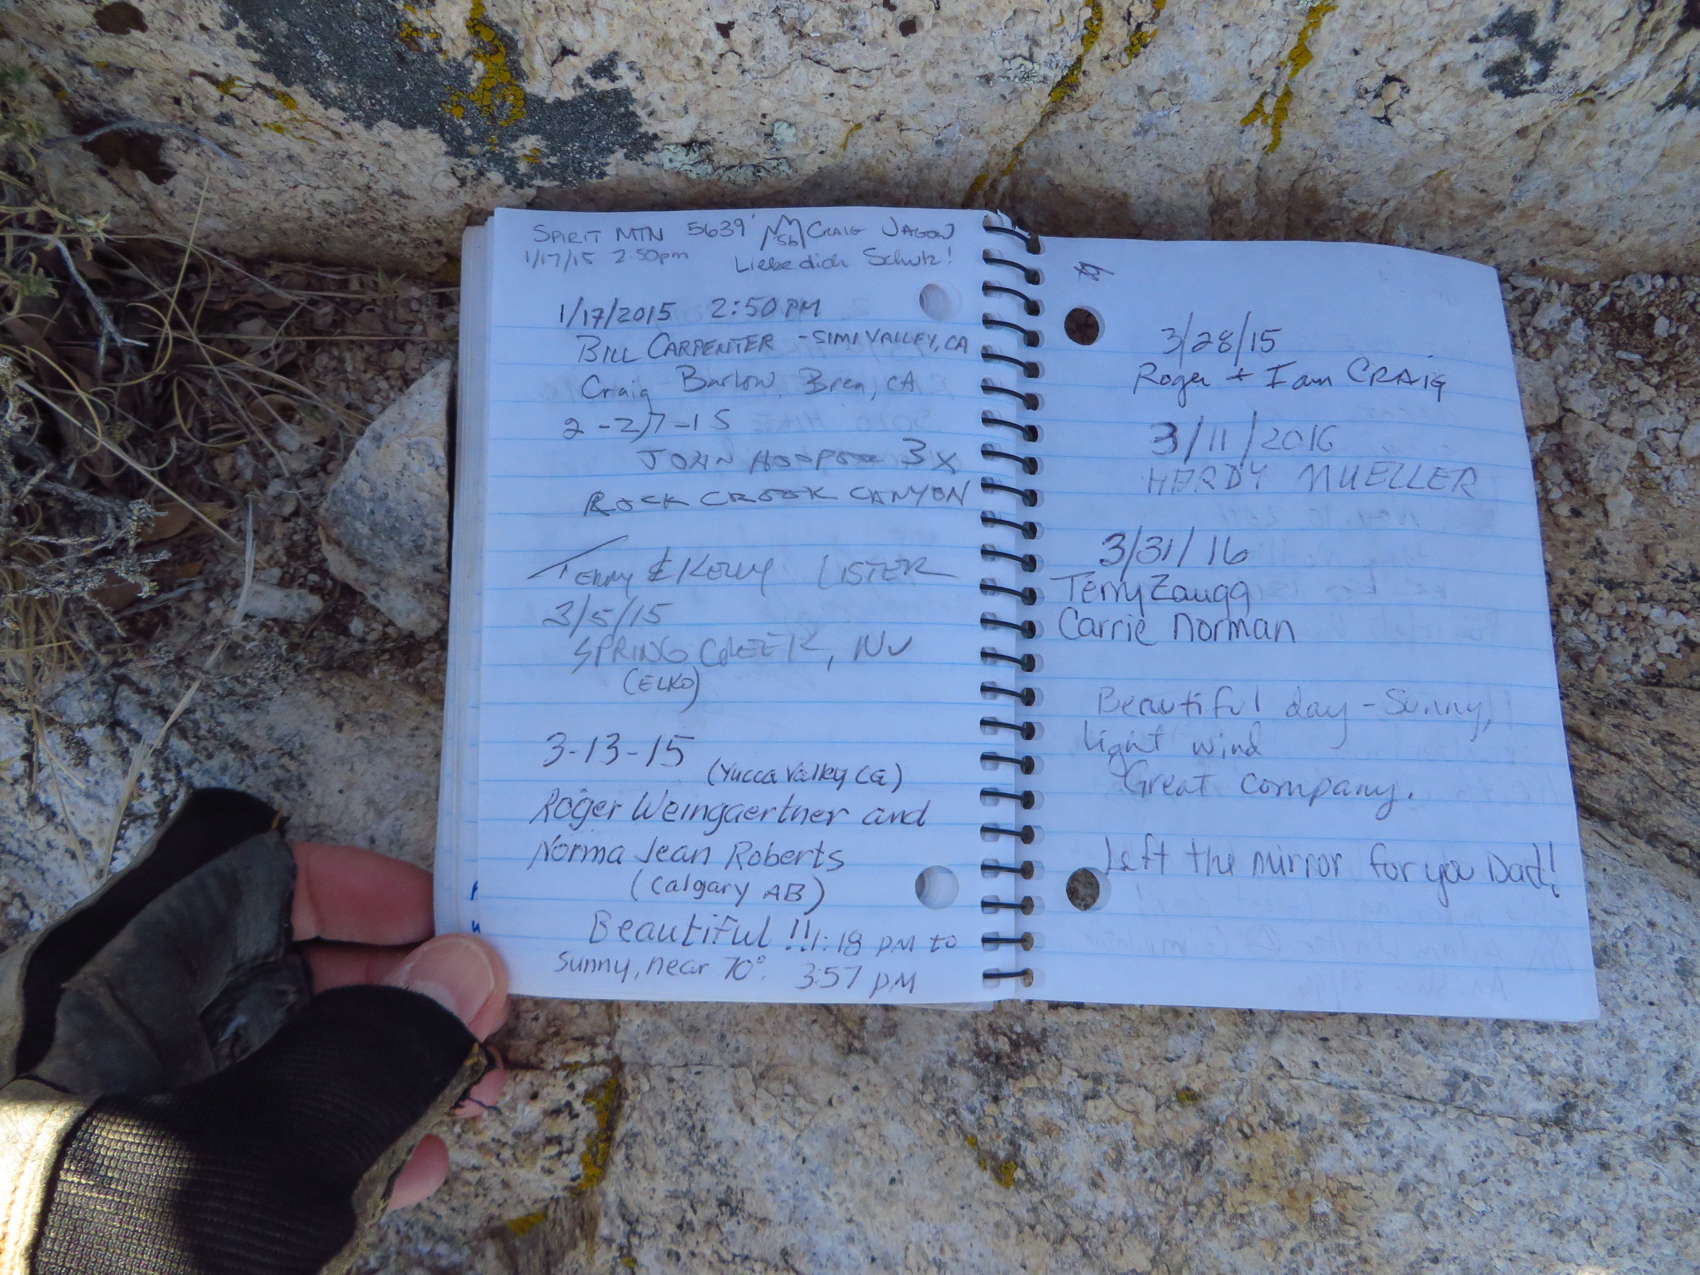 SPIRIT MTN 5639' CRAIG JAGOW
1/17/15 2:50pm Liebe dich Schutz!
1/17/2015 2:50 PM
BILL CARPENTER - SIMI VALLEY, CA
Craig Barlow, Brea, CA
2-27-15
JOHN 3X
ROCK CROOK CANYON
TERRY & KELLY LISTER
3/5/15
SPRING CREEK, NV
(ELKO)
3-13-15
(Yucca Valley Ca)
Roger Weingaertner and
Norma Jean Roberts
(Calgary AB)
Beautiful !! 1:18 PM to
Sunny, near 70°. 3:57 PM
3/28/15
Roger + I am CRAIG
3/11/2016
HARDY MUELLER
3/31/16
Terry Zaugg
Carrie Norman
Beautiful day - Sunny,
Light wind
Great company.
Left the mirror for you Dad!